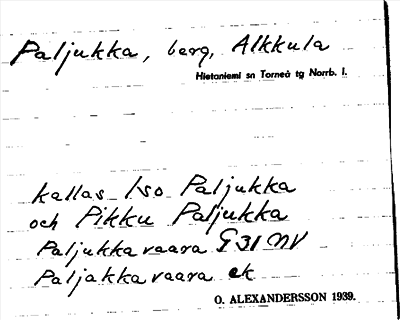 Paljukka, berg, Alkkula
Hietaniemi sn Torneå tg Norrb. l.
kallas Iso Paljukka
och Pikku Paljukka
Paljukkavaara G31NV
Paljakkavaara ek
O. ALEXANDERSSON 1939.